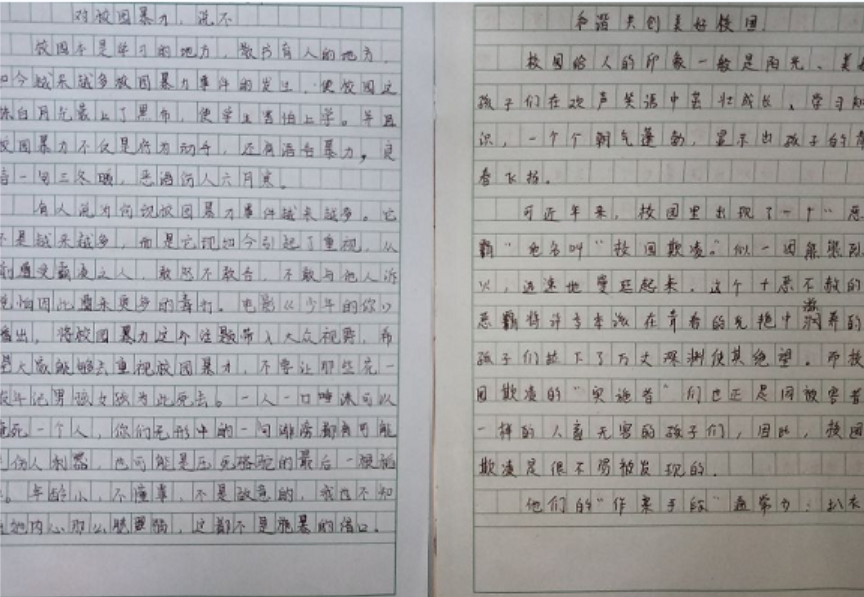 对校园暴力，说不
校园不是学习的地方，教书育人的地方，
如今越来越多校园暴力事件的发生，使校园这
抹白月光蒙上了黑布，使学生害怕上学。并且
校园暴力不仅是行为动手，还有语言暴力，良
言一句三冬暖，恶语伤人六月寒。
有人说为何现校园暴力事件越来越多。它
不是越来越多，而是它现如今引起了重视，从
前遭受霸凌之人，敢怒不敢言，不敢与他人诉
说怕因此遭来更多的毒打。电影《少年的你》
播出，将校园暴力这个注题带入大众视野，希
望大家能够去重视校园暴力，不要让那些花一
般年纪男孩女孩为此死去。一人一口唾沫可以
淹死一个人，你们无形中的一句诽谤都有可能
是伤人利器，也可能是压死骆驼的最后一根稻
草。年龄小，不懂事，不是故意的，我也不知
道她内心那么脆弱，这都不是施暴的借口。
和谐共创美好校园
校园给人的印象一般是阳光、美好
孩子们在欢声笑语中茁壮成长，学习知
识，一个个朝气蓬勃，显示出孩子的青
春飞扬。
可近年来，校园里出现了一个"恶
霸"免名叫"校园欺凌。"似一团熊熊烈
火，迅速地蔓延起来。这个十恶不赦的
恶霸将许多本激在青春的光艳中滋润养的
孩子们拉下了万丈深渊使其绝望。而校
园欺凌的"实施者"们也正是同被害者
一样的人畜无害的孩子们，因此，校园
欺凌是很不容易被发现的。
他们的"作案手段"通常为：扒衣